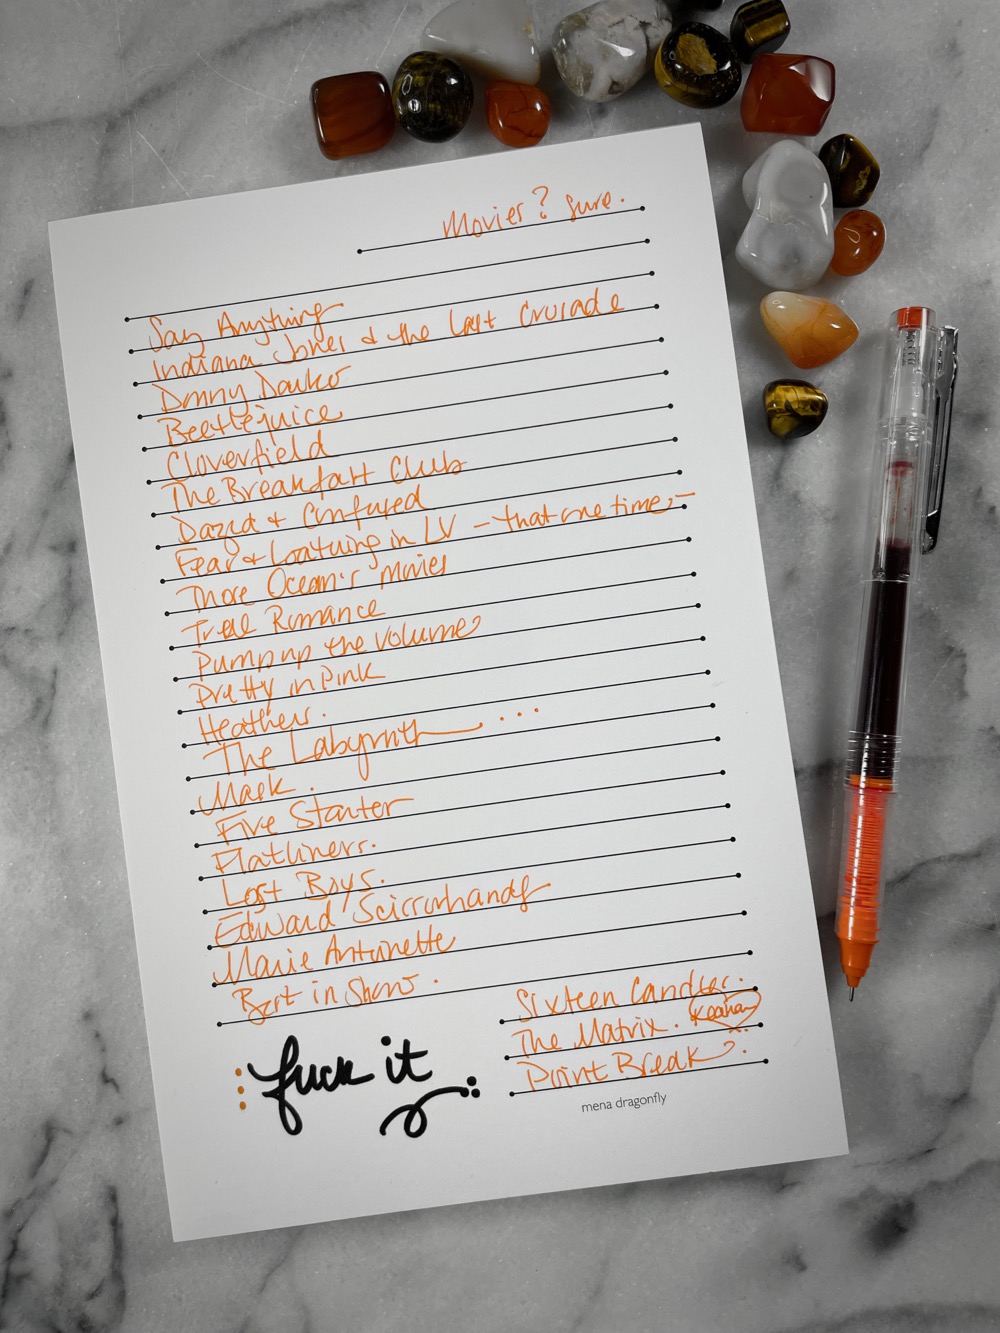 Movies? Sure.
Say Anything
Indiana Jones & the Last Crusade
Donny Darko
Beetlejuice
Cloverfield
The Breakfast Club
Dazed & Confused
Fear & Loathing in LV - that one time -
Those Ocean's Movies
True Romance
Pump up the Volume
Pretty in Pink
Heathers.
The Labyrinth ...
Mask.
Five Starter
Flatliners.
Lost Boys.
Edward Scissorhands
Marie Antoinette
Best in Show.
Sixteen Candles.
The Matrix. Keanu
Point Break
fuck it
mena dragonfly